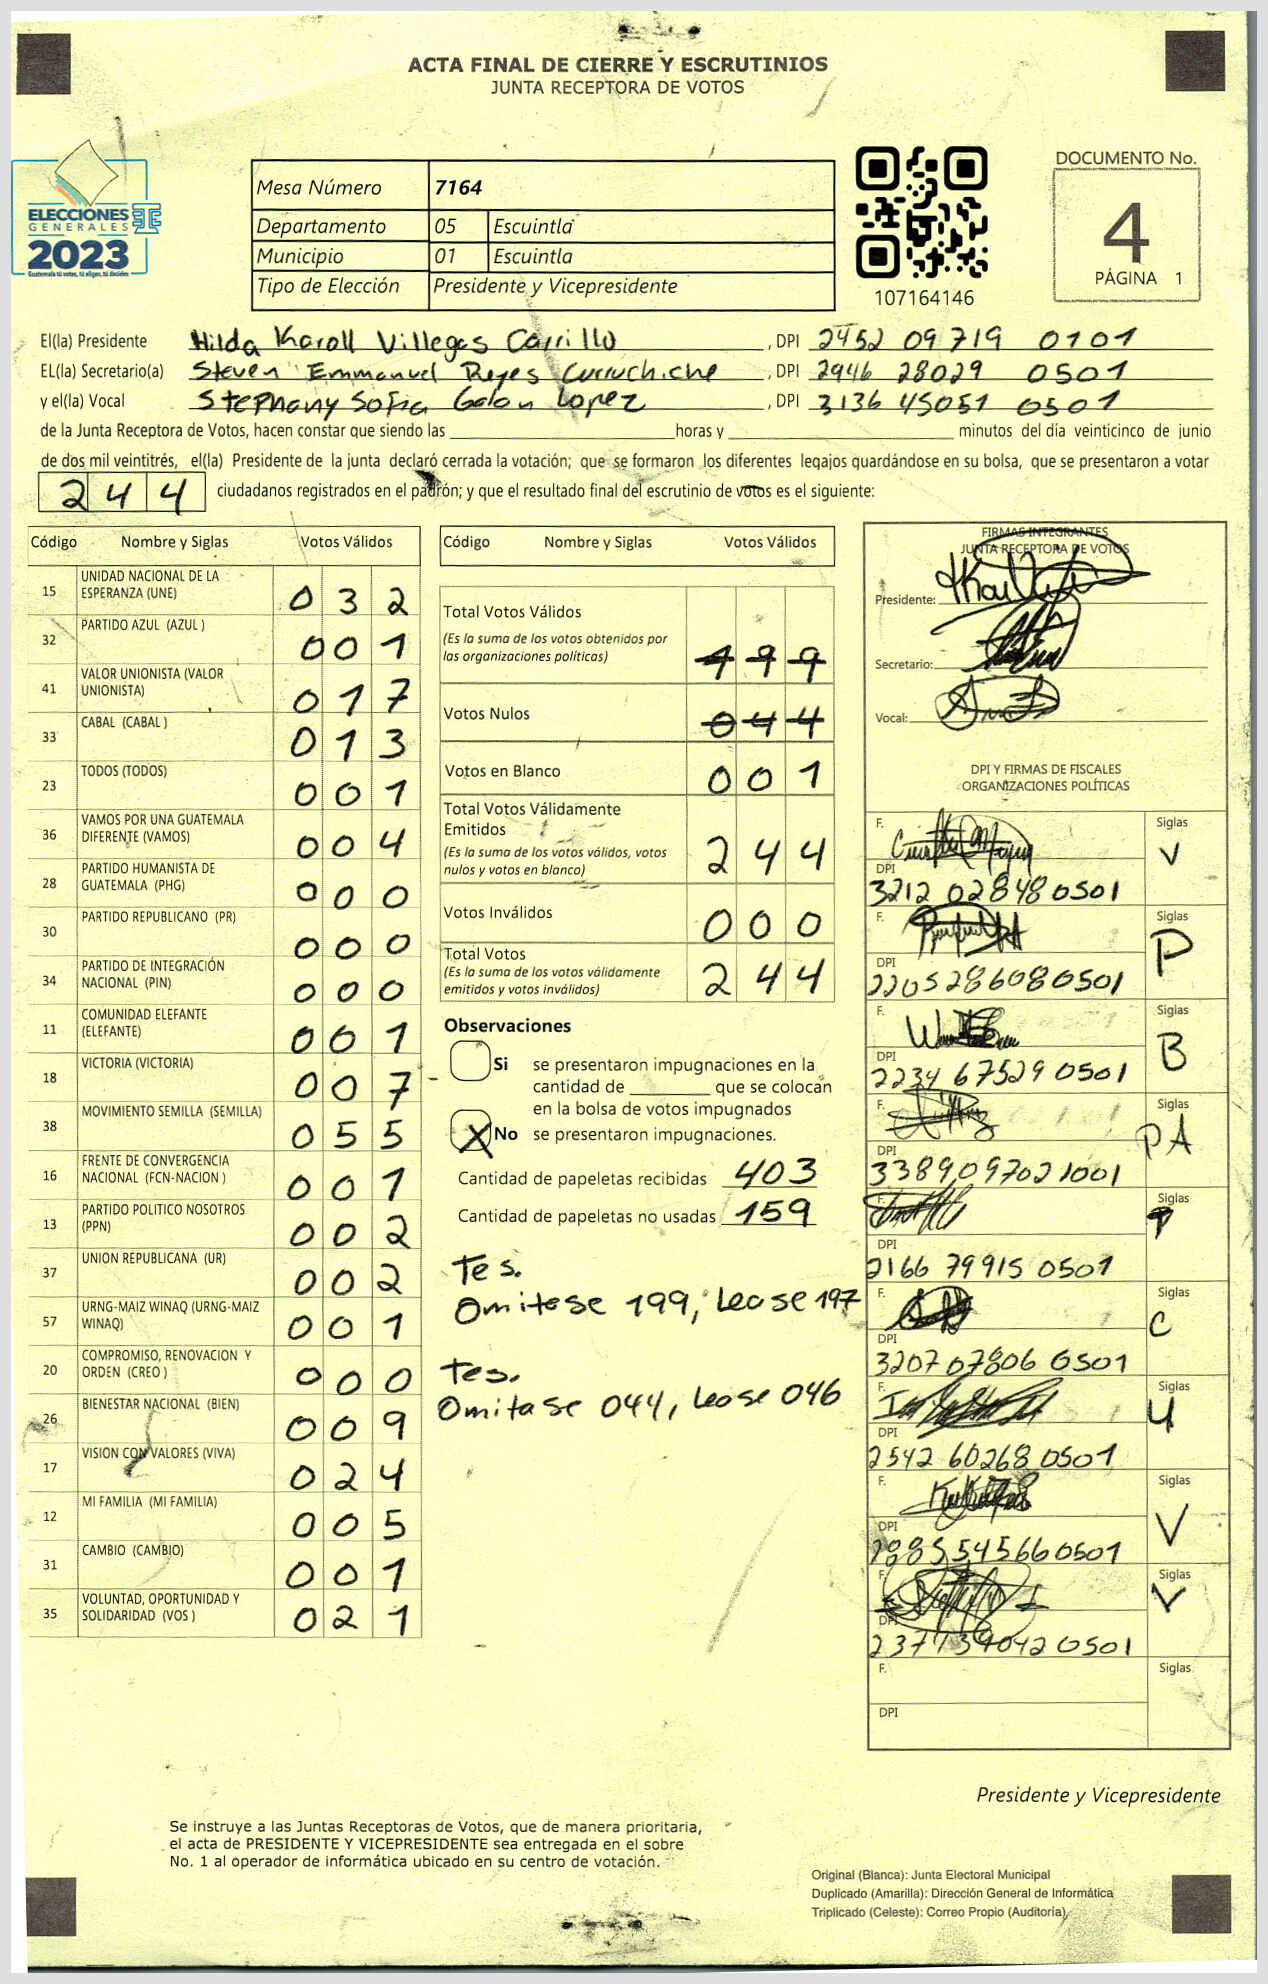 ACTA FINAL DE CIERRE Y ESCRUTINIOS
JUNTA RECEPTORA DE VOTOS
ELECCIONES
GENERALES
2023
Guatemala tú votas, tú eliges, tú decides
Mesa Número 7164
Departamento 05 Escuintla
Municipio 01 Escuintla
Tipo de Elección Presidente y Vicepresidente
107164146
DOCUMENTO No.
4
PÁGINA 1
El(la) Presidente Hilda Karoll Villegas Carrillo, DPI 2452 09719 0101
EL(la) Secretario(a) Steven Emmanuel Reyes Curruchiche, DPI 2946 28029 0501
y el(la) Vocal Stephany Sofia Galan Lopez, DPI 3136 45051 0501
de la Junta Receptora de Votos, hacen constar que siendo las ______ horas y ______ minutos del día veinticinco de junio
de dos mil veintitrés, el(la) Presidente de la junta declaró cerrada la votación; que se formaron los diferentes legajos guardándose en su bolsa, que se presentaron a votar
244 ciudadanos registrados en el padrón; y que el resultado final del escrutinio de votos es el siguiente:
Código Nombre y Siglas Votos Válidos
15 UNIDAD NACIONAL DE LA ESPERANZA (UNE) 032
32 PARTIDO AZUL (AZUL ) 001
41 VALOR UNIONISTA (VALOR UNIONISTA) 017
33 CABAL (CABAL ) 013
23 TODOS (TODOS) 001
36 VAMOS POR UNA GUATEMALA DIFERENTE (VAMOS) 004
28 PARTIDO HUMANISTA DE GUATEMALA (PHG) 000
30 PARTIDO REPUBLICANO (PR) 000
34 PARTIDO DE INTEGRACIÓN NACIONAL (PIN) 000
11 COMUNIDAD ELEFANTE (ELEFANTE) 001
18 VICTORIA (VICTORIA) 007
38 MOVIMIENTO SEMILLA (SEMILLA) 055
16 FRENTE DE CONVERGENCIA NACIONAL (FCN-NACION ) 001
13 PARTIDO POLITICO NOSOTROS (PPN) 002
37 UNION REPUBLICANA (UR) 002
57 URNG-MAIZ WINAQ (URNG-MAIZ WINAQ) 001
20 COMPROMISO, RENOVACION Y ORDEN (CREO ) 000
26 BIENESTAR NACIONAL (BIEN) 009
17 VISION CON VALORES (VIVA) 024
12 MI FAMILIA (MI FAMILIA) 005
31 CAMBIO (CAMBIO) 001
35 VOLUNTAD, OPORTUNIDAD Y SOLIDARIDAD (VOS ) 021
Código Nombre y Siglas Votos Válidos
Total Votos Válidos 199
(Es la suma de los votos obtenidos por
las organizaciones políticas)
Votos Nulos 044
Votos en Blanco 001
Total Votos Válidamente
Emitidos 244
(Es la suma de los votos válidos, votos
nulos y votos en blanco)
Votos Inválidos 000
Total Votos 244
(Es la suma de los votos válidamente
emitidos y votos inválidos)
Observaciones
Si se presentaron impugnaciones en la
cantidad de ______ que se colocan
en la bolsa de votos impugnados
X No se presentaron impugnaciones.
Cantidad de papeletas recibidas 403
Cantidad de papeletas no usadas 159
Tes.
Omitase 199, Lease 197
Tes.
Omitase 044, Lease 046
FIRMAS INTEGRANTES
JUNTA RECEPTORA DE VOTOS
Presidente:
Secretario:
Vocal:
DPI Y FIRMAS DE FISCALES
ORGANIZACIONES POLÍTICAS
F. Siglas V
DPI
3212 02848 0501
F. Siglas P
DPI
2205 28608 0501
F. Siglas B
DPI
2234 67529 0501
F. Siglas PA
DPI
3389 09702 1001
F. Siglas
DPI
2166 79915 0501
F. Siglas C
DPI
3207 07806 0501
F. Siglas U
DPI
2542 60268 0501
F. Siglas V
DPI
54566 0501
F. Siglas V
DPI
0501
F. Siglas
DPI
Presidente y Vicepresidente
Se instruye a las Juntas Receptoras de Votos, que de manera prioritaria,
el acta de PRESIDENTE Y VICEPRESIDENTE sea entregada en el sobre
No. 1 al operador de informática ubicado en su centro de votación.
Original (Blanca): Junta Electoral Municipal
Duplicado (Amarilla): Dirección General de Informática
Triplicado (Celeste): Correo Propio (Auditoría)